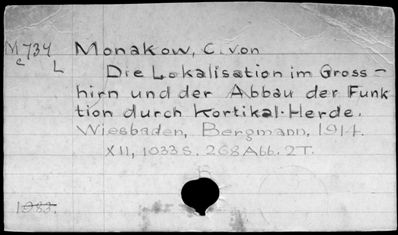 M 734 Monakow, C. von
c L Die Lokalisation im Gross-
hirn und der Abbau der Funk
tion durch Kortikal-Herde.
Wiesbaden, Bergmann, 1914.
XII, 1033 S. 268 Abb. 2T.
1983.